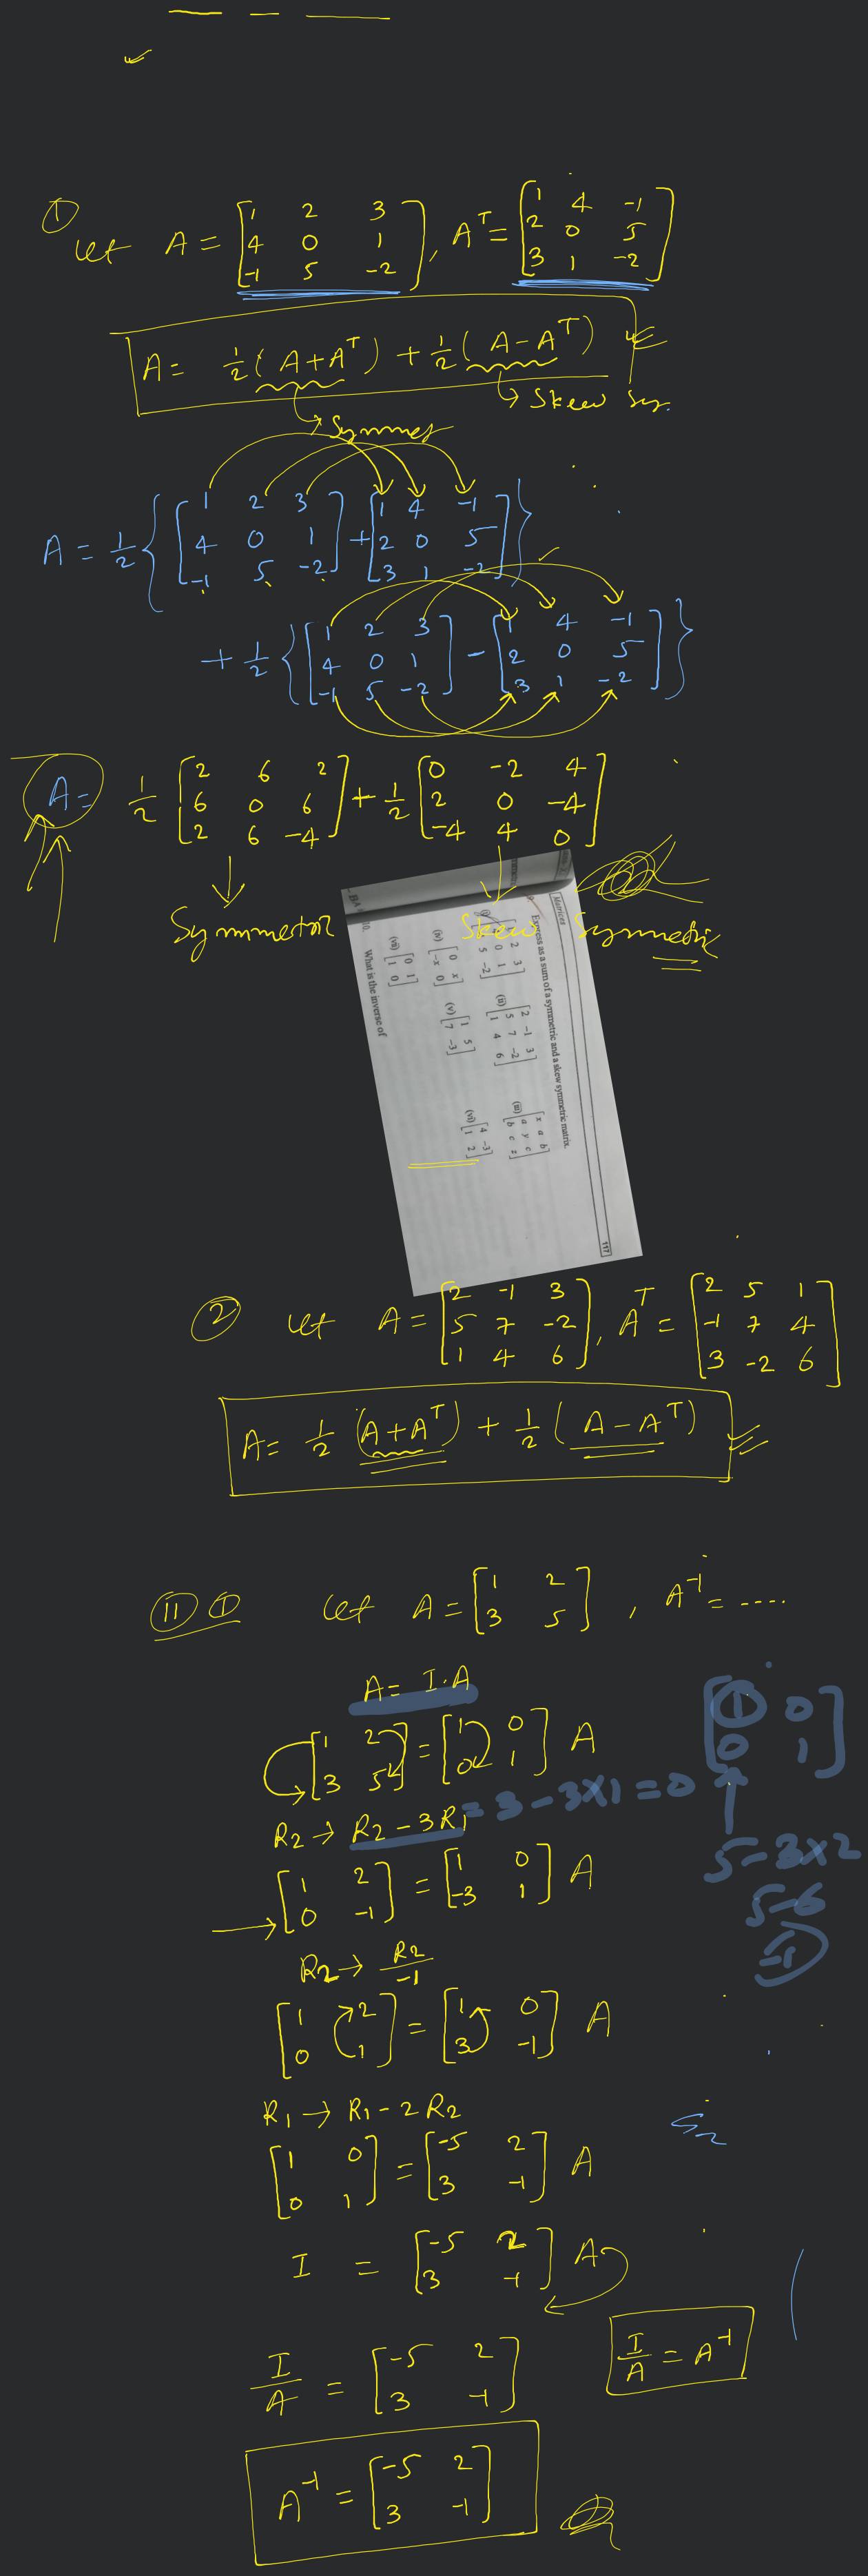 ①
Let A = [1 2 3; 4 0 1; -1 5 -2], Aᵀ = [1 4 -1; 2 0 5; 3 1 -2]
A = 1/2 (A + Aᵀ) + 1/2 (A - Aᵀ)
→ Skew Sy.
→ Symmet
A = 1/2 { [1 2 3; 4 0 1; -1 5 -2] + [1 4 -1; 2 0 5; 3 1 -2] }
+ 1/2 { [1 2 3; 4 0 1; -1 5 -2] - [1 4 -1; 2 0 5; 3 1 -2] }
A = 1/2 [2 6 2; 6 0 6; 2 6 -4] + 1/2 [0 -2 4; 2 0 -4; -4 4 0]
Symmetric Skew Symmetric
Matrices 117
Express as a sum of a symmetric and a skew symmetric matrix.
(i) [2 3; 0 1; 5 -2] (ii) [2 -1 3; 5 7 -2; 1 4 6] (iii) [x a b; a y c; b c z]
(iv) [0 x; -x 0] (v) [1 5; 7 -3] (vi) [4 -3; 1 2]
(vii) [0 1; 1 0]
10. What is the inverse of
② Let A = [2 -1 3; 5 7 -2; 1 4 6], Aᵀ = [2 5 1; -1 7 4; 3 -2 6]
A = 1/2 (A + Aᵀ) + 1/2 (A - Aᵀ)
⑪ ① Let A = [1 2; 3 5], A⁻¹ = ....
A = I·A
[1 2; 3 5] = [1 0; 0 1] A
[1 0; 0 1]
R₂ → R₂ - 3R₁ = 3 - 3×1 = 0
5 - 3×2
5-6
-1
[1 2; 0 -1] = [1 0; -3 1] A
R₂ → R₂/-1
[1 2; 0 1] = [1 0; 3 -1] A
R₁ → R₁ - 2R₂
[1 0; 0 1] = [-5 2; 3 -1] A
I = [-5 2; 3 -1] A
I/A = A⁻¹
I/A = [-5 2; 3 -1]
A⁻¹ = [-5 2; 3 -1]